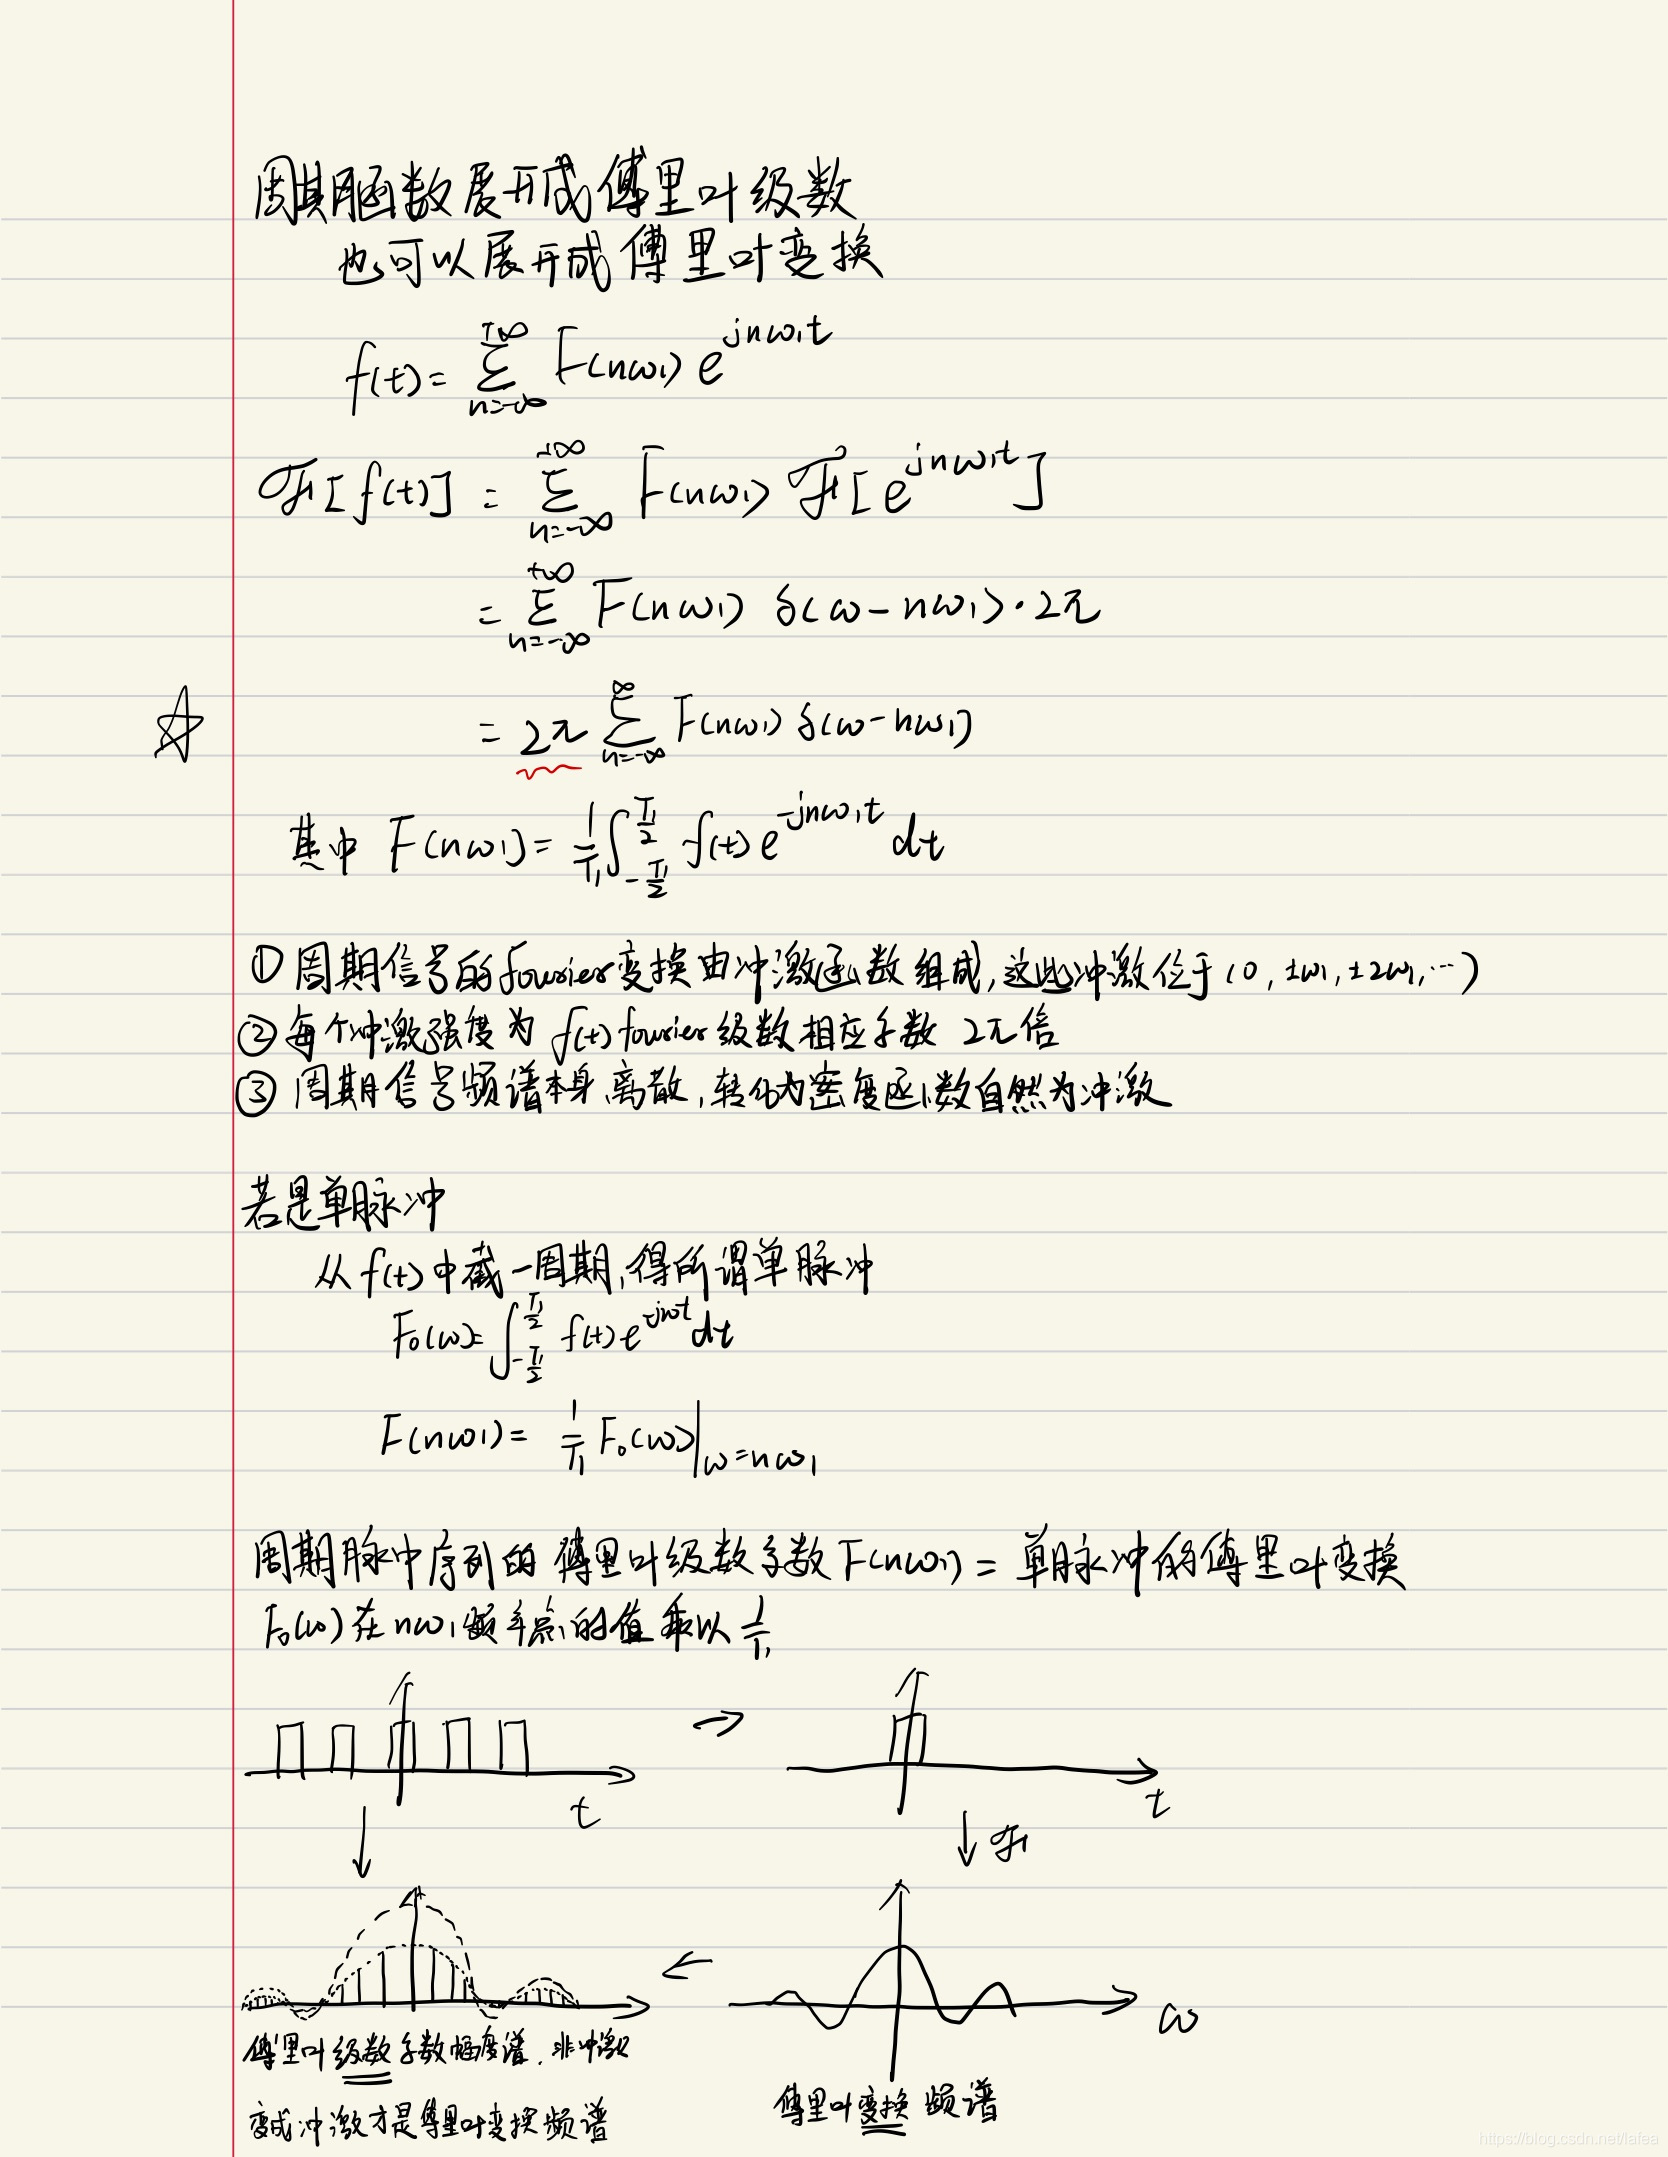 周期函数展开成傅里叶级数
也可以展开成傅里叶变换
f(t) = ∑_{n=-∞}^{+∞} F(nω₁) e^{jnω₁t}
ℱ[f(t)] = ∑_{n=-∞}^{+∞} F(nω₁) ℱ[e^{jnω₁t}]
= ∑_{n=-∞}^{+∞} F(nω₁) δ(ω-nω₁)·2π
☆ = 2π ∑_{n=-∞}^{∞} F(nω₁) δ(ω-nω₁)
其中 F(nω₁) = 1/T₁ ∫_{-T₁/2}^{T₁/2} f(t) e^{-jnω₁t} dt
① 周期信号的fourier变换由冲激函数组成,这些冲激位于(0, ±ω₁, ±2ω₁, …)
② 每个冲激强度为 f(t) fourier级数相应系数 2π倍
③ 周期信号频谱本身离散,转化为密度函数自然为冲激
若是单脉冲
从f(t)中截一周期,得所谓单脉冲
F₀(ω) = ∫_{-T₁/2}^{T₁/2} f(t) e^{-jωt} dt
F(nω₁) = 1/T₁ F₀(ω)|_{ω=nω₁}
周期脉冲序列的 傅里叶级数系数 F(nω₁) = 单脉冲的傅里叶变换
F₀(ω)在nω₁频率点的值乘以 1/T₁
t
t
ℱ
ω
傅里叶级数系数幅度谱.非冲激
变成冲激才是傅里叶变换频谱
傅里叶变换 频谱
https://blog.csdn.net/lafea